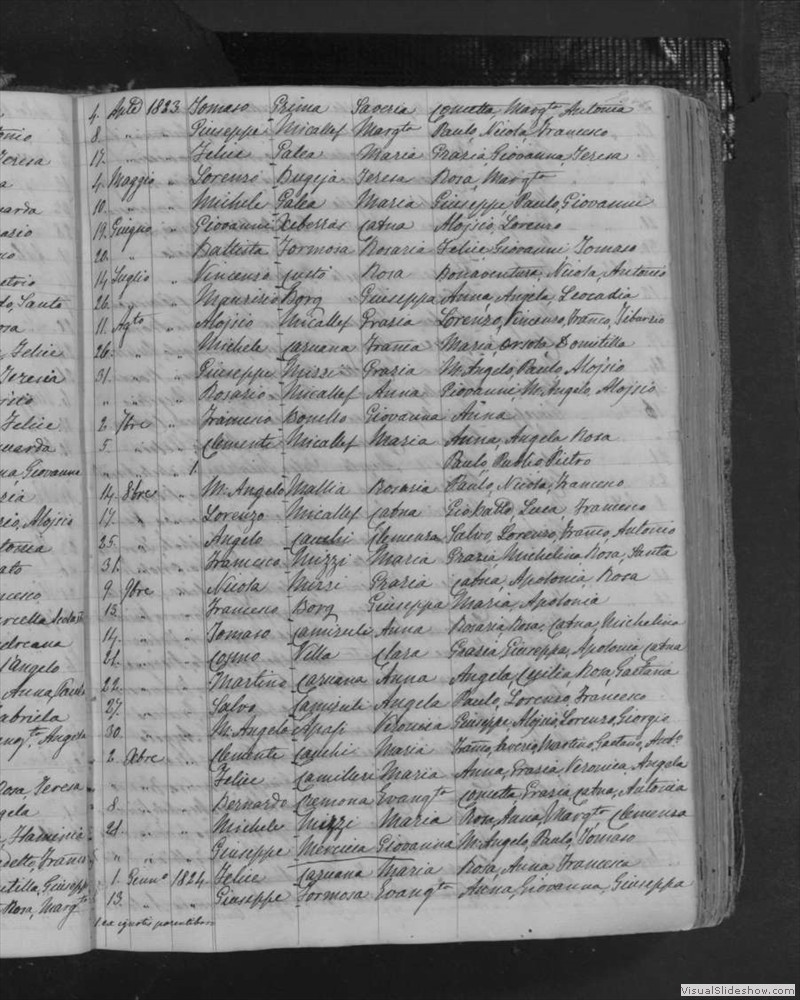 onio
Teresa
a
uarda
asio
co
etrio
do, Santo
osa
, Felice
Teresia
Felice
uarda
na, Giovanna
sia
rio, Aloisio
tonia
ato
ncesco
arcella
d'Angelo
Anna, Paul
Gabriella
Angela
Rosa Teresa
ngela
4. Aple 1823 Tomaso Prima Saveria Concetta Margta Antonia
8 " " Giuseppe Micallef Margta Paulo, Nicola, Francesco
17. " " Felice Galea Maria Grazia, Giovanna, Teresa
4. Maggio " Lorenzo Bugeja Teresa Rosa, Margta
10. " " Michele Galea Maria Giuseppe Paulo, Giovanni
19. Giugno " Giovanni Xiberras Catna Aloisio, Lorenzo
20. " " Battista Formosa Rosaria Felice, Giovanni Tomaso
14 Luglio " Vincenzo Custò Rosa Bonaventura, Nicola, Antonio
26. " " Maurisio Borg Giuseppa Anna, Angela, Leocadia
11. Agto " Aloisio Micallef Grazia Lorenzo, Vincenzo, Franco, Tiburzio
26. " " Michele Caruana Franca Maria, Orsola, Domitilla
31. " " Giuseppe Mizzi Grazia M. Angelo, Paulo, Aloisio
" " " Rosario Micallef Anna Giovanni, M. Angelo, Aloisio
2 7bre " Francesco Bonello Giovanna Anna
5. " " Clemente Micallef Maria Anna, Angela Rosa
" " " 1. Paulo, Publio Pietro
14. 8bre " M. Angelo Mallia Rosaria Paulo, Nicola, Francesco
17. " " Lorenzo Micallef Catna Luca Francesco
25. " " Angelo Cauchi Clemenza Salvo, Lorenzo, Franco, Antonio
31. " " Francesco Mizzi Maria Grazia, Michelina Rosa, Santa
9 9bre " Nicola Mizzi Grazia Catna, Apolonia, Rosa
13. " " Francesco Borg Giuseppa Maria, Apolonia
14. " " Tomaso Camisuli Anna Rosaria, Rosa, Catna, Michelina
21. " " Cosmo Villa Clara Grazia, Giuseppa, Apolonia, Catna
22. " " Martino Caruana Anna Angela, Cecilia, Rosa, Gaetana
27. " " Salvo Camisuli Angela Paulo, Lorenzo, Francesco
30. " " M. Angelo Apap Veronica Giuseppe, Aloisio, Lorenzo, Giorgio
2 Xbre " Clemente Cauchi Maria Franco, Saverio, Martino, Gaetano, Anto
Felice Camilleri Maria Anna, Grazia, Veronica, Angela
8. " " Bernardo Cremona Evangta Concetta, Grazia, Catna, Antonia
21. " " Michele Mizzi Maria Rosa, Anna, Margta Clemenza
" " " Giuseppe Mercieca Giovanna M. Angelo, Paulo, Tomaso
1. Genno 1824. Felice Caruana Maria Rosa, Anna Francesca
13. " " Giuseppe Formosa Evangta Anna, Giovanna, Giuseppa
1 ex ignotis parentibus
VisualSlideshow.com